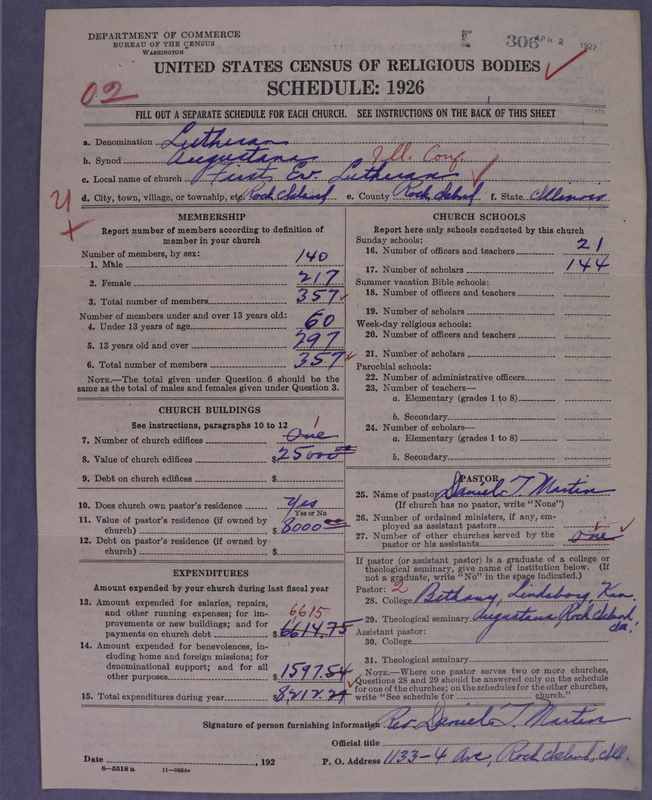 DEPARTMENT OF COMMERCE
BUREAU OF THE CENSUS
WASHINGTON
E 306 APR 2 1927
UNITED STATES CENSUS OF RELIGIOUS BODIES
SCHEDULE: 1926
02
FILL OUT A SEPARATE SCHEDULE FOR EACH CHURCH. SEE INSTRUCTIONS ON THE BACK OF THIS SHEET
a. Denomination Lutheran
b. Synod Augustana Ill. Conf.
c. Local name of church First Ev. Lutheran
d. City, town, village, or township, etc. Rock Island e. County Rock Island f. State Illinois
MEMBERSHIP
Report number of members according to definition of
member in your church
Number of members, by sex:
1. Male 140
2. Female 217
3. Total number of members 357
Number of members under and over 13 years old:
4. Under 13 years of age 60
5. 13 years old and over 297
6. Total number of members 357
NOTE.—The total given under Question 6 should be the
same as the total of males and females given under Question 3.
CHURCH BUILDINGS
See instructions, paragraphs 10 to 12
7. Number of church edifices One 1
8. Value of church edifices $25000 00
9. Debt on church edifices $
10. Does church own pastor's residence Yes
Yes or No
11. Value of pastor's residence (if owned by
church) $8000 00
12. Debt on pastor's residence (if owned by
church) $
EXPENDITURES
Amount expended by your church during last fiscal year
13. Amount expended for salaries, repairs,
and other running expenses; for im-
provements or new buildings; and for
payments on church debt $ 6615 6614.75
14. Amount expended for benevolences, in-
cluding home and foreign missions; for
denominational support; and for all
other purposes $1597.54
15. Total expenditures during year $8212.29
CHURCH SCHOOLS
Report here only schools conducted by this church
Sunday schools:
16. Number of officers and teachers 21
17. Number of scholars 144
Summer vacation Bible schools:
18. Number of officers and teachers
19. Number of scholars
Week-day religious schools:
20. Number of officers and teachers
21. Number of scholars
Parochial schools:
22. Number of administrative officers
23. Number of teachers—
a. Elementary (grades 1 to 8)
b. Secondary
24. Number of scholars—
a. Elementary (grades 1 to 8)
b. Secondary
PASTOR
25. Name of pastor Daniel T. Martin
(If church has no pastor, write "None")
26. Number of ordained ministers, if any, em-
ployed as assistant pastors
27. Number of other churches served by the
pastor or his assistants one 1
If pastor (or assistant pastor) is a graduate of a college or
theological seminary, give name of institution below. (If
not a graduate, write "No" in the space indicated.)
Pastor: 2
28. College Bethany, Lindsborg, Kan.
29. Theological seminary Augustana Rock Island
Ill.
Assistant pastor:
30. College
31. Theological seminary
NOTE.—Where one pastor serves two or more churches,
Questions 28 and 29 should be answered only on the schedule
for one of the churches; on the schedules for the other churches,
write "See schedule for church."
Signature of person furnishing information Rev. Daniel T. Martin
Official title
Date , 192 P. O. Address 1133-4 Ave, Rock Island, Ill.
8—5518 a 11—9054a